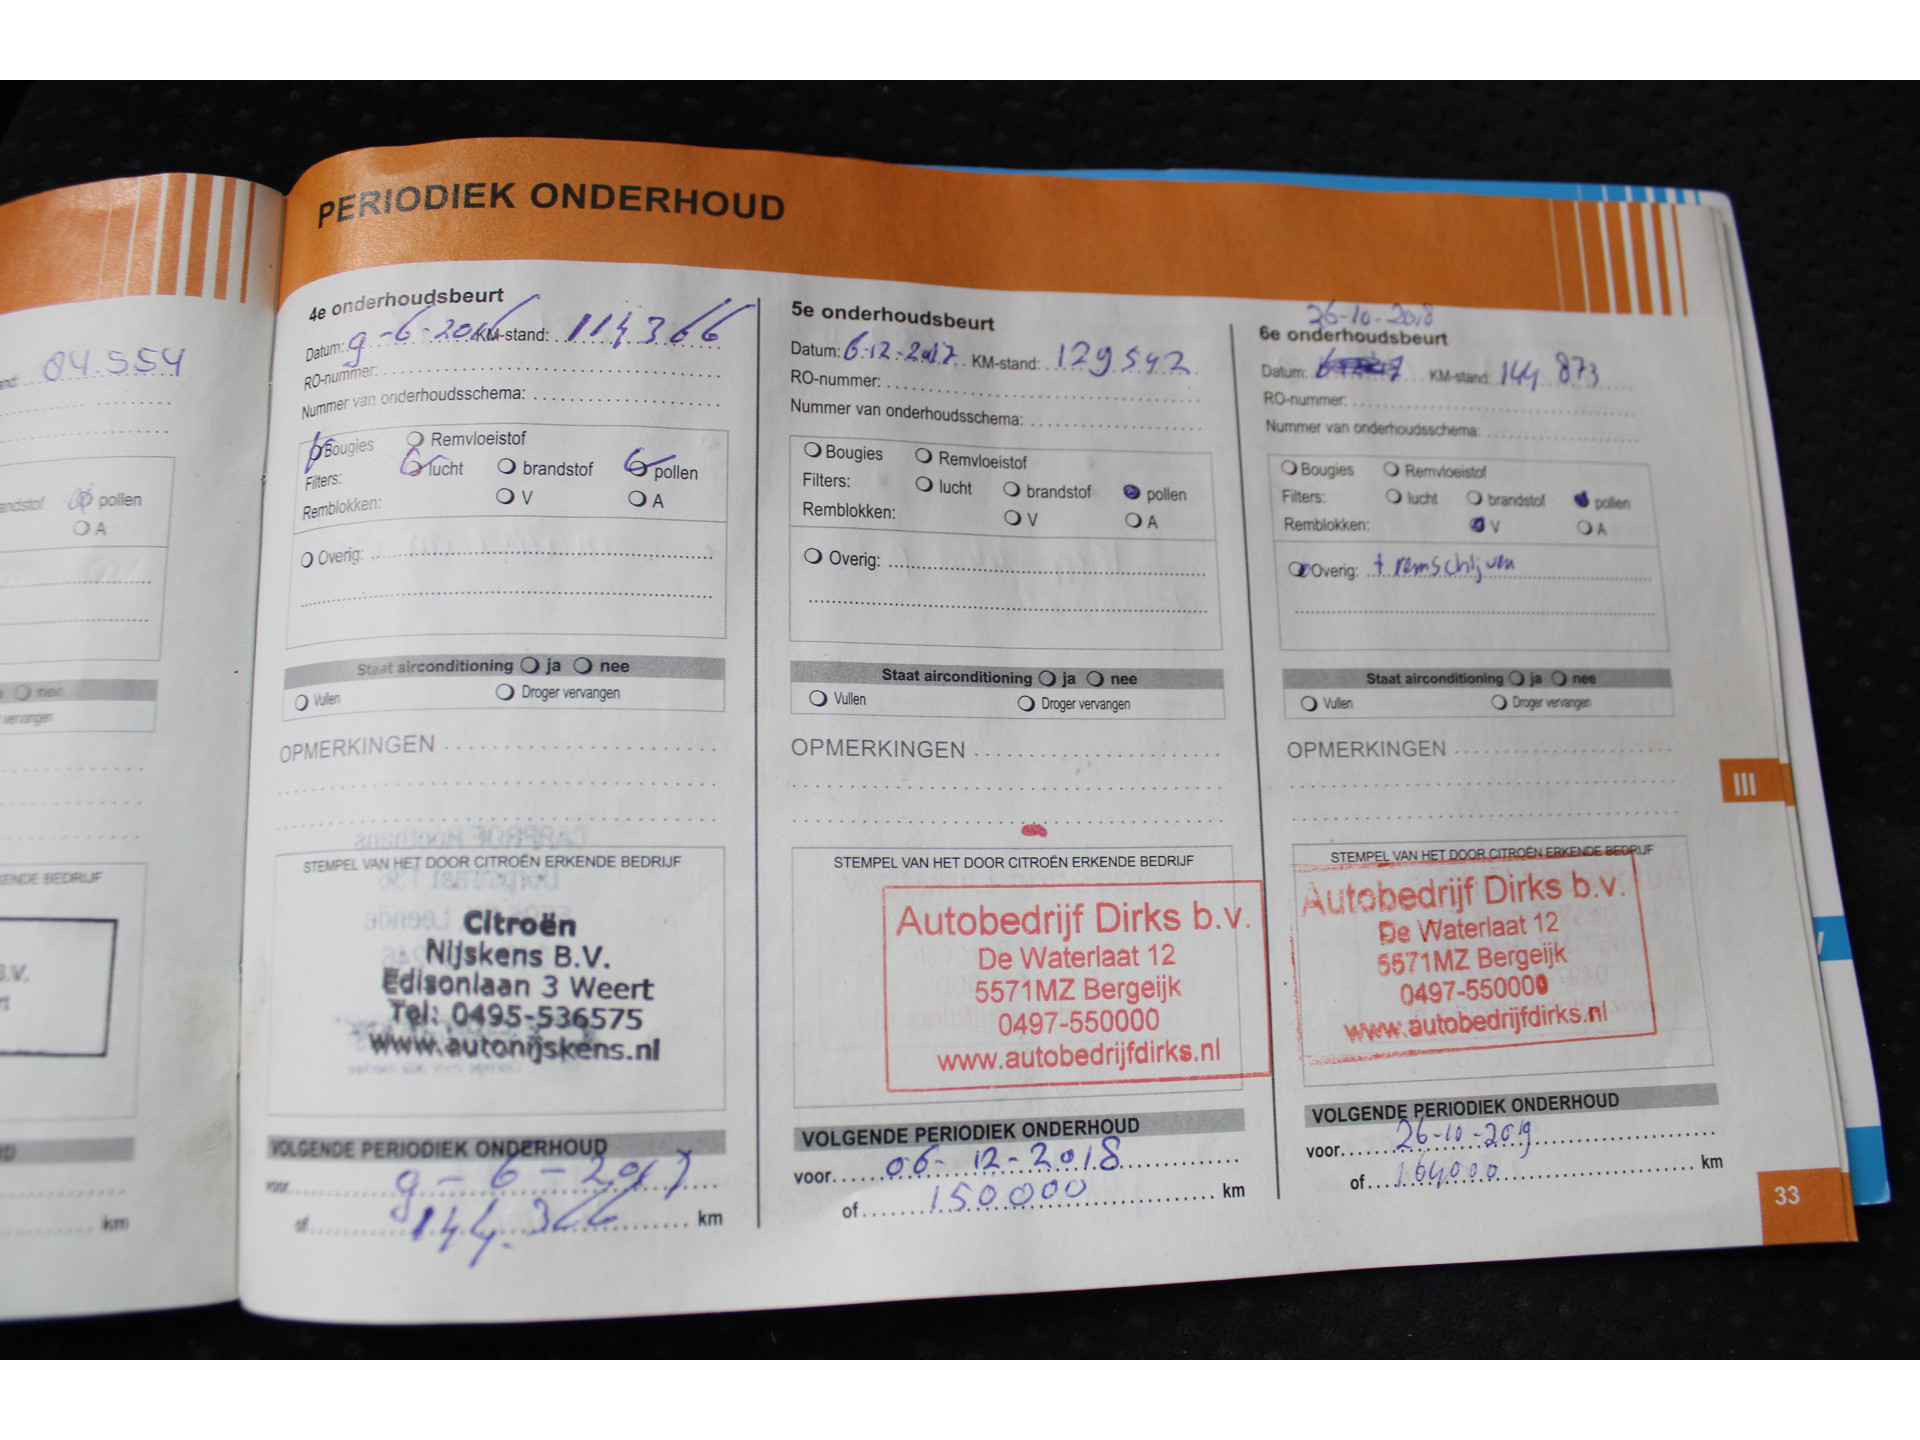 PERIODIEK ONDERHOUD
04.554
andstof pollen
A
nee
vervangen
ENDE BEDRIJF
B.V.
km
4e onderhoudsbeurt
Datum: 9-6-2016 KM-stand: 114366
RO-nummer:
Nummer van onderhoudsschema:
Bougies Remvloeistof
Filters: lucht brandstof pollen
Remblokken: V A
Overig:
Staat airconditioning ja nee
Vullen Droger vervangen
OPMERKINGEN
STEMPEL VAN HET DOOR CITROËN ERKENDE BEDRIJF
Citroën
Nijskens B.V.
Edisonlaan 3 Weert
Tel: 0495-536575
www.autonijskens.nl
VOLGENDE PERIODIEK ONDERHOUD
voor 9-6-2017
of km
5e onderhoudsbeurt
Datum: 6-12-2017 KM-stand: 129542
RO-nummer:
Nummer van onderhoudsschema:
Bougies Remvloeistof
Filters: lucht brandstof pollen
Remblokken: V A
Overig:
Staat airconditioning ja nee
Vullen Droger vervangen
OPMERKINGEN
STEMPEL VAN HET DOOR CITROËN ERKENDE BEDRIJF
Autobedrijf Dirks b.v.
De Waterlaat 12
5571MZ Bergeijk
0497-550000
www.autobedrijfdirks.nl
VOLGENDE PERIODIEK ONDERHOUD
voor 06-12-2018
of 150000 km
26-10-2018
6e onderhoudsbeurt
Datum: KM-stand: 144 873
RO-nummer:
Nummer van onderhoudsschema:
Bougies Remvloeistof
Filters: lucht brandstof pollen
Remblokken: V A
Overig: + remschijven
Staat airconditioning ja nee
Vullen Droger vervangen
OPMERKINGEN
STEMPEL VAN HET DOOR CITROËN ERKENDE BEDRIJF
Autobedrijf Dirks b.v.
De Waterlaat 12
5571MZ Bergeijk
0497-550000
www.autobedrijfdirks.nl
VOLGENDE PERIODIEK ONDERHOUD
voor 26-10-2019
of 164000 km
III
33